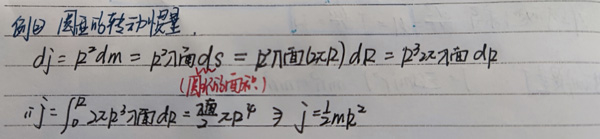 例回 圆盘的转动惯量.
dj = R²dm = R²λ面ds = R²λ面(2πR)dR = R³2πλ面dR
(圆环的面积)
∴ j = ∫₀ᴿ 2πR³λ面dR = λ面/2 πR⁴ ⇒ j = ½mR²